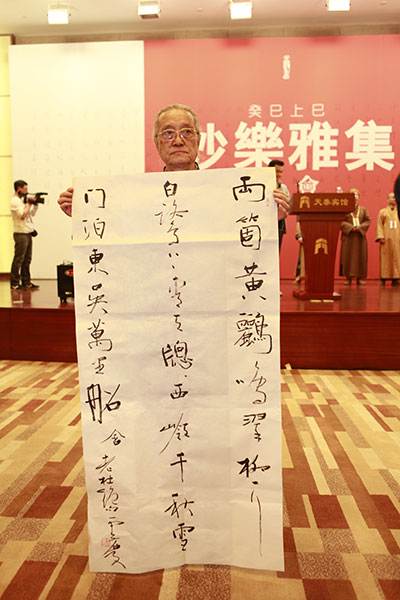 癸巳上巳
妙樂雅集
會
天泰宾馆
兩箇黃鸝鳴翠柳一行
白鷺上青天窻西嶺千秋雪
門泊東吳萬里船 含 老杜詩